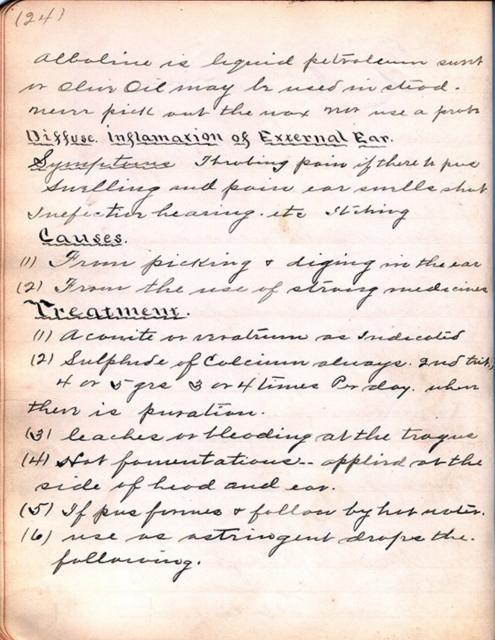 (24)
Alboline is liquid petroleum sweet
or Olive Oil may be used in stead.
never pick out the wax nor use a probe
Diffuse. Inflamaxion of External Ear.
Symptoms Throbing pain if there is pus
Swelling and pain ear swells shut
hearing. etc Itching
Causes.
(1) From picking & diging in the ear
(2) From the use of strong medicines
Treatment.
(1) Aconite or veratrum as Indicated
(2) Sulphide of Calcium always. 2nd trit,
4 or 5 grs 3 or 4 times Per day. when
ther is puration.
(3) leaches or bleeding at the tragus
(4) Hot fomentations -- applied at the
side of head and ear.
(5) If pus formes & follow by hot water.
(6) use as astringent drops the.
following.